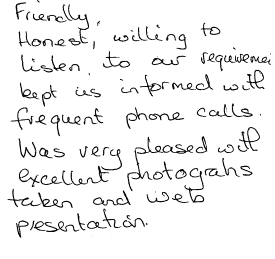 Friendly,
Honest, willing to
listen, to our requiremen
kept us informed with
frequent phone calls.
Was very pleased with
excellent photograhs
taken and web
presentation.